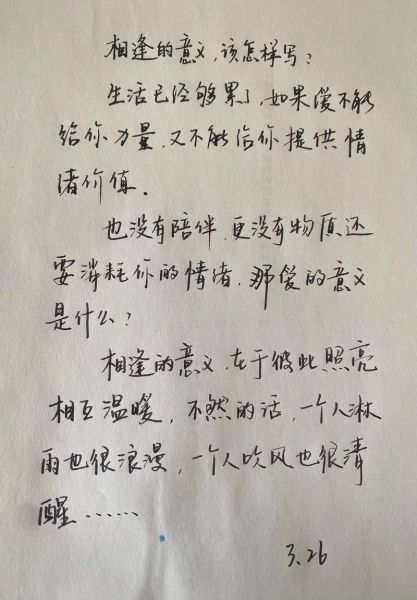 相逢的意义，该怎样写？
生活已经够累了，如果爱不能
给你力量，又不能给你提供情
绪价值。
也没有陪伴，更没有物质还
要消耗你的情绪，那爱的意义
是什么？
相逢的意义，在于彼此照亮
相互温暖，不然的话，一个人淋
雨也很浪漫，一个人吹风也很清
醒……
3.26